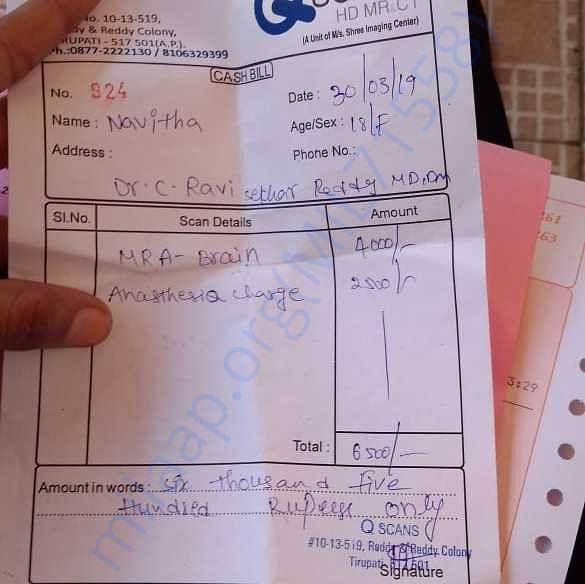 HD MR & CT
(A Unit of M/s. Shree Imaging Center)
No. 10-13-519,
& Reddy Colony,
TIRUPATI - 517 501(A.P.),
Ph.:0877-2222130 / 8106329399
CASH BILL
No. 924
Date : 30/03/19
Name : Navitha
Age/Sex : 18/F
Address :
Phone No.:
Dr. C. Ravi sekhar Reddy MD, DM
Sl.No. Scan Details Amount
MRA - Brain 4000/-
Anasthesia charge 2500/-
Total : 6500/-
Amount in words : six thousand Five
Hundred Rupees only
Q SCANS
#10-13-519, Reddy & Reddy Colony
Tirupati 517501
Signature
3:29